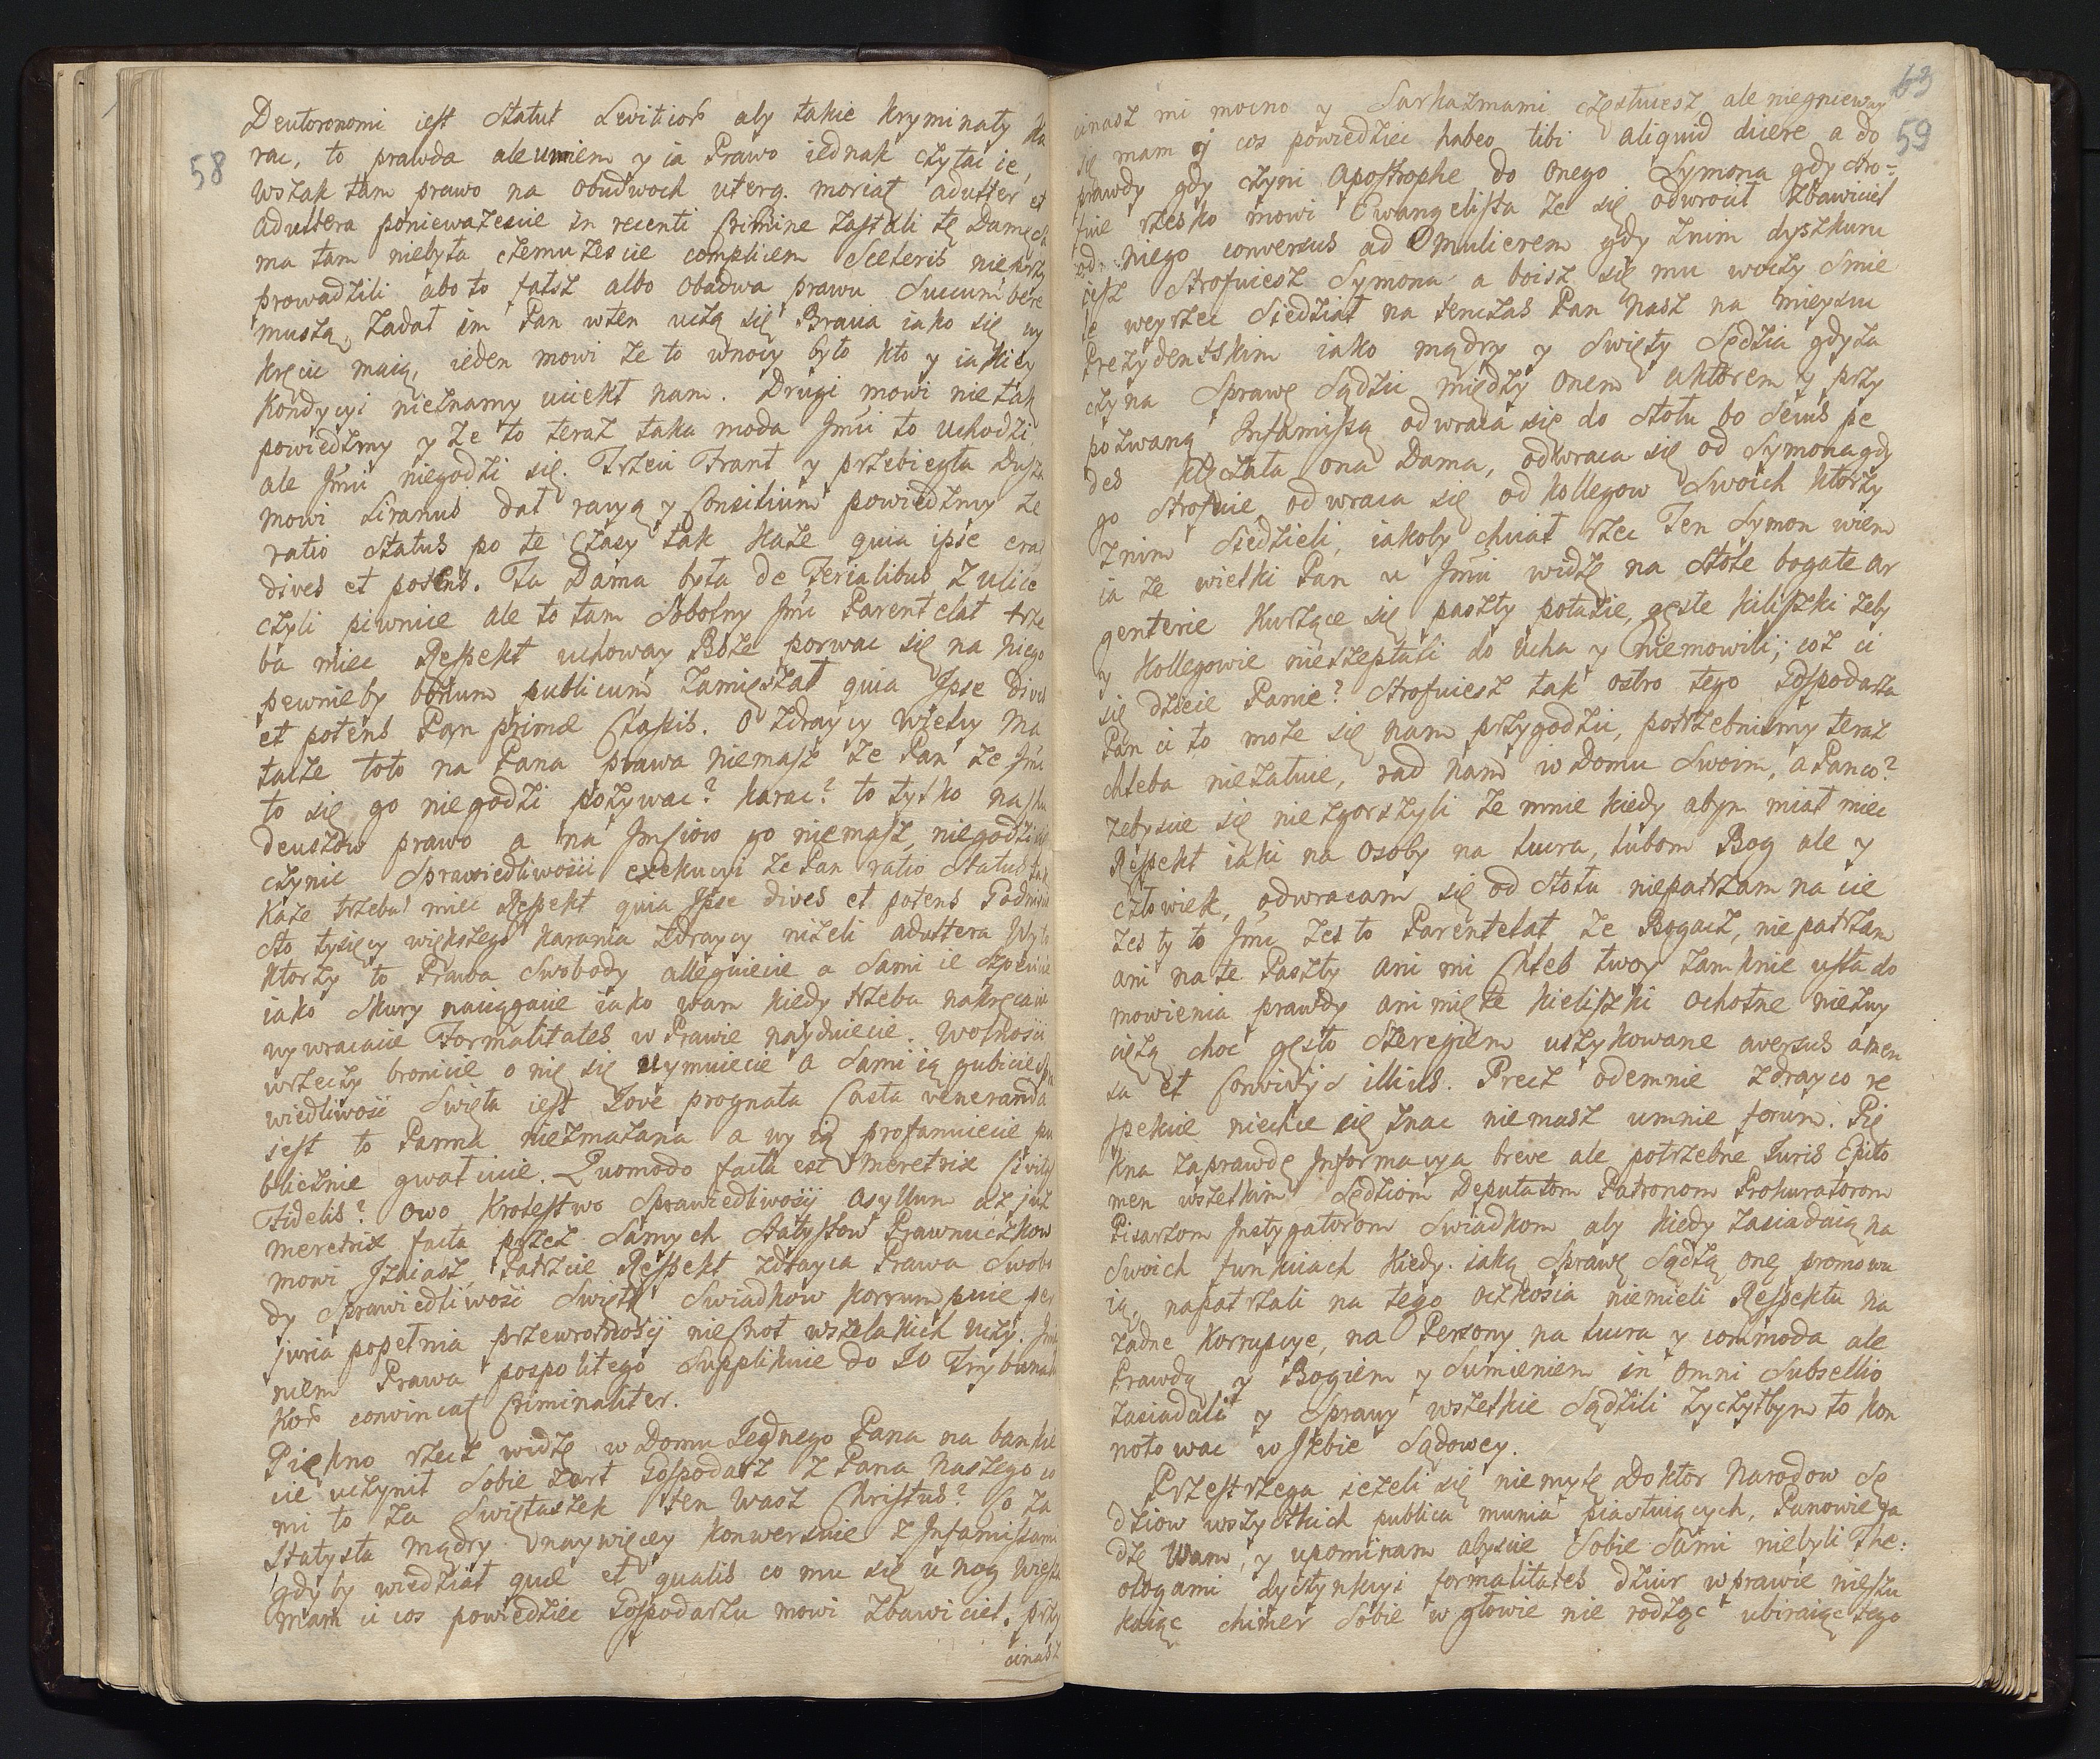 58
Deutoronomi iest statut Leviticor aby takie kryminały ka
rac, to prawda ale umiem y ia Prawo iednak czytai ie,
wszak tam prawo na obudwoch uterq. moriat adulter et
adultera poniewazescie in recenti Crimine zastali tę Damę sa
ma tam niebyła czemuzescie complicem Sceleris nieprzy
prowadzili abo to fałsz albo obadwa prawu Succumbere
muszą, zadał im Pan wten uczą się Bracia iako się wy
kręcic maią, ieden mowi ze to wnocy było kto y iakiey
kondycyi nieznamy uciekł nam. Drugi mowi nie tak
powiedzmy y ze to teraz taka moda Jmci to uchodzi
ale Jmci niegodzi się. Trzeci Frant y przebiegła Dusza
mowi Liranus dał racyą y Consilium powiedzmy ze
ratio status po te czasy tak kaze quia ipse erat
dives et potens. Ta Dama była de Ferialibus z ulice
czyli piwnice ale to tam Sobotny Jmć Parentelat trze
ba miec Respekt uchoway Boze porwac się na niego
pewnieby bonum publicum zamięszał quia Ipse dives
et potens Pan primæ Classis. O zdraycy wielcy ma
tacze toto na Pana prawa niemasz ze Pan ze Jmć
to się go niegodzi pozywac? karac? to tylko na
deuszow prawo a na Jmściow go niemasz, niegodzi się
czynic Sprawiedliwości exekucyi ze Pan ratio status tak
kaze trzeba miec Respekt quia Ipse dives et potens
sto tysięcy większego karania zdraycy nizeli adultera Wy to
ktorzy to Prawa Swobody alleguiecie a Sami ie
iako skury naciągacie iako wam kiedy trzeba nakręcacie
wywracacie Formalitates w Prawie naydziecie. Wolności
wrzeczy bronicie o nię się uymuiecie a Sami ią gubicie Spra
wiedliwość Swięta iest Iove prognata Casta veneranda
iest to Panna niezmazana a wy ią profanuiecie pu
blicznie gwałcicie. Quomodo facta est meretrix Civitas
Fidelis? owo krolestwo Sprawiedliwości Asyllum az iuz
meretrix facta przez Samych Statystow Prawniczkow
mowi Izaiasz, Patrzcie Respekt zdrayca Prawa Swobo
dy Sprawiedliwość Swiętą Swiadkow korrumpuie per
iuria popełnia przewrotności niecnot wszelakich uczy. Jmie
niem Prawa pospolitego Supplikuie do IO Trybunału
kor convincat Criminaliter.
Piękno rzecz widzę w Domu Iednego Pana na bankie
cie uczynił Sobie zart Gospodarz z Pana Naszego co
mi to za Swiętaszek ten wasz Christus? Co za
Statysta mądry naywięcey konwersuie z Infamissami
gdyby wiedział quæ et qualis co mu się u nog
Mam ci cos powiedziec Gospodarzu mowi Zbawiciel, przy
cinasz
63
59
cinasz mi mocno y Sarkazmami częstuiesz ale niegnieway
się mam ci cos powiedziec habeo tibi aliquid dicere a do
prawdy gdy czyni apostrophe do onego Symona gdy stro=
fuie rzesko mowi Ewangelista ze się odwrocił Zbawiciel
od niego conversus ad mulierem gdy znim dyszkuru
iesz strofuiesz Symona a boisz się mu woczy Smie
le weyrzec Siedział na tenczas Pan Nasz na mieyscu
Prezydentskim iako mądry y Swięty Sędzia gdy za
czyna Sprawę Sądzic między onem aktorem y przy
pozwaną Infamissą odwraca się do stołu bo Secus pe
des klęczała ona Dama, odwraca się od Symona gdy
go strofuie odwraca się od kollegow Swoich ktorzy
znim Siedzieli, iakoby chciał rzec Ten Symon wiem
ia ze wielki Pan u Jmci widzę na stole bogate ar
genterie kurzące się paszty potazie, gęste kiliszki zeby
y kollegowie nieszeptali do ucha y niemowili; coz ci
się dzieie Panie? Strofuiesz tak ostro tego Gospodarza
Pan ci to moze się nam przygodzic, potrzebnismy teraz
chleba niezałuie, rad nam w Domu Swoim, a Panco?
zebyscie się niezgorszyli ze mnie kiedy abym miał miec
Respekt iaki na osoby na lucra, lubom Bog ale y
człowiek, odwracam się od stołu niepatrzam na cie
zes ty to Jmć zes to Parentelat ze Bogacz, nie patrzam
ani na te Paszty ani mi Chleb twoy zamknie usta do
mowienia prawdy ani mię te kieliszki ochotne niezwy
cięzą choc gęsto szeregiem uszykowane aversus a men
sa et Convivijs illius. Precz odemnie zdrayco re
spekcie niechcę cię znac niemasz umnie forum. Pię
kna zaprawdę Informacya breve ale potrzebne Iuris Epito
men wszelkim Sędziom Deputatom Patronom Prokuratorom
Pisarzom Instygatorom Swiadkom aby kiedy zasiadaią na
Swoich funkciach kiedy iaką Sprawę Sądzą onę promowu
ią, napatrzali na tego niemieli Respektu na
zadne korrupcye, na Persony na lucra y commoda ale
Prawdą y Bogiem y Sumieniem in omni Subsellio
zasiadali y Sprawy wszelkie Sądzili zyczyłbym to kon
notowac w Izbie Sądowey.
Przestrzega iezeli się niemylę Doktor Narodow Sę
dziow wszystkich publica munia piastuiących, Panowie Ra
dzę Wam, y upominam abyscie Sobie Sami niebyli The:
ologami dystynkcyi formalitates dziur w prawie nieszu
kaiąc chimer Sobie w głowie nie rodząc ubiraiąc tego